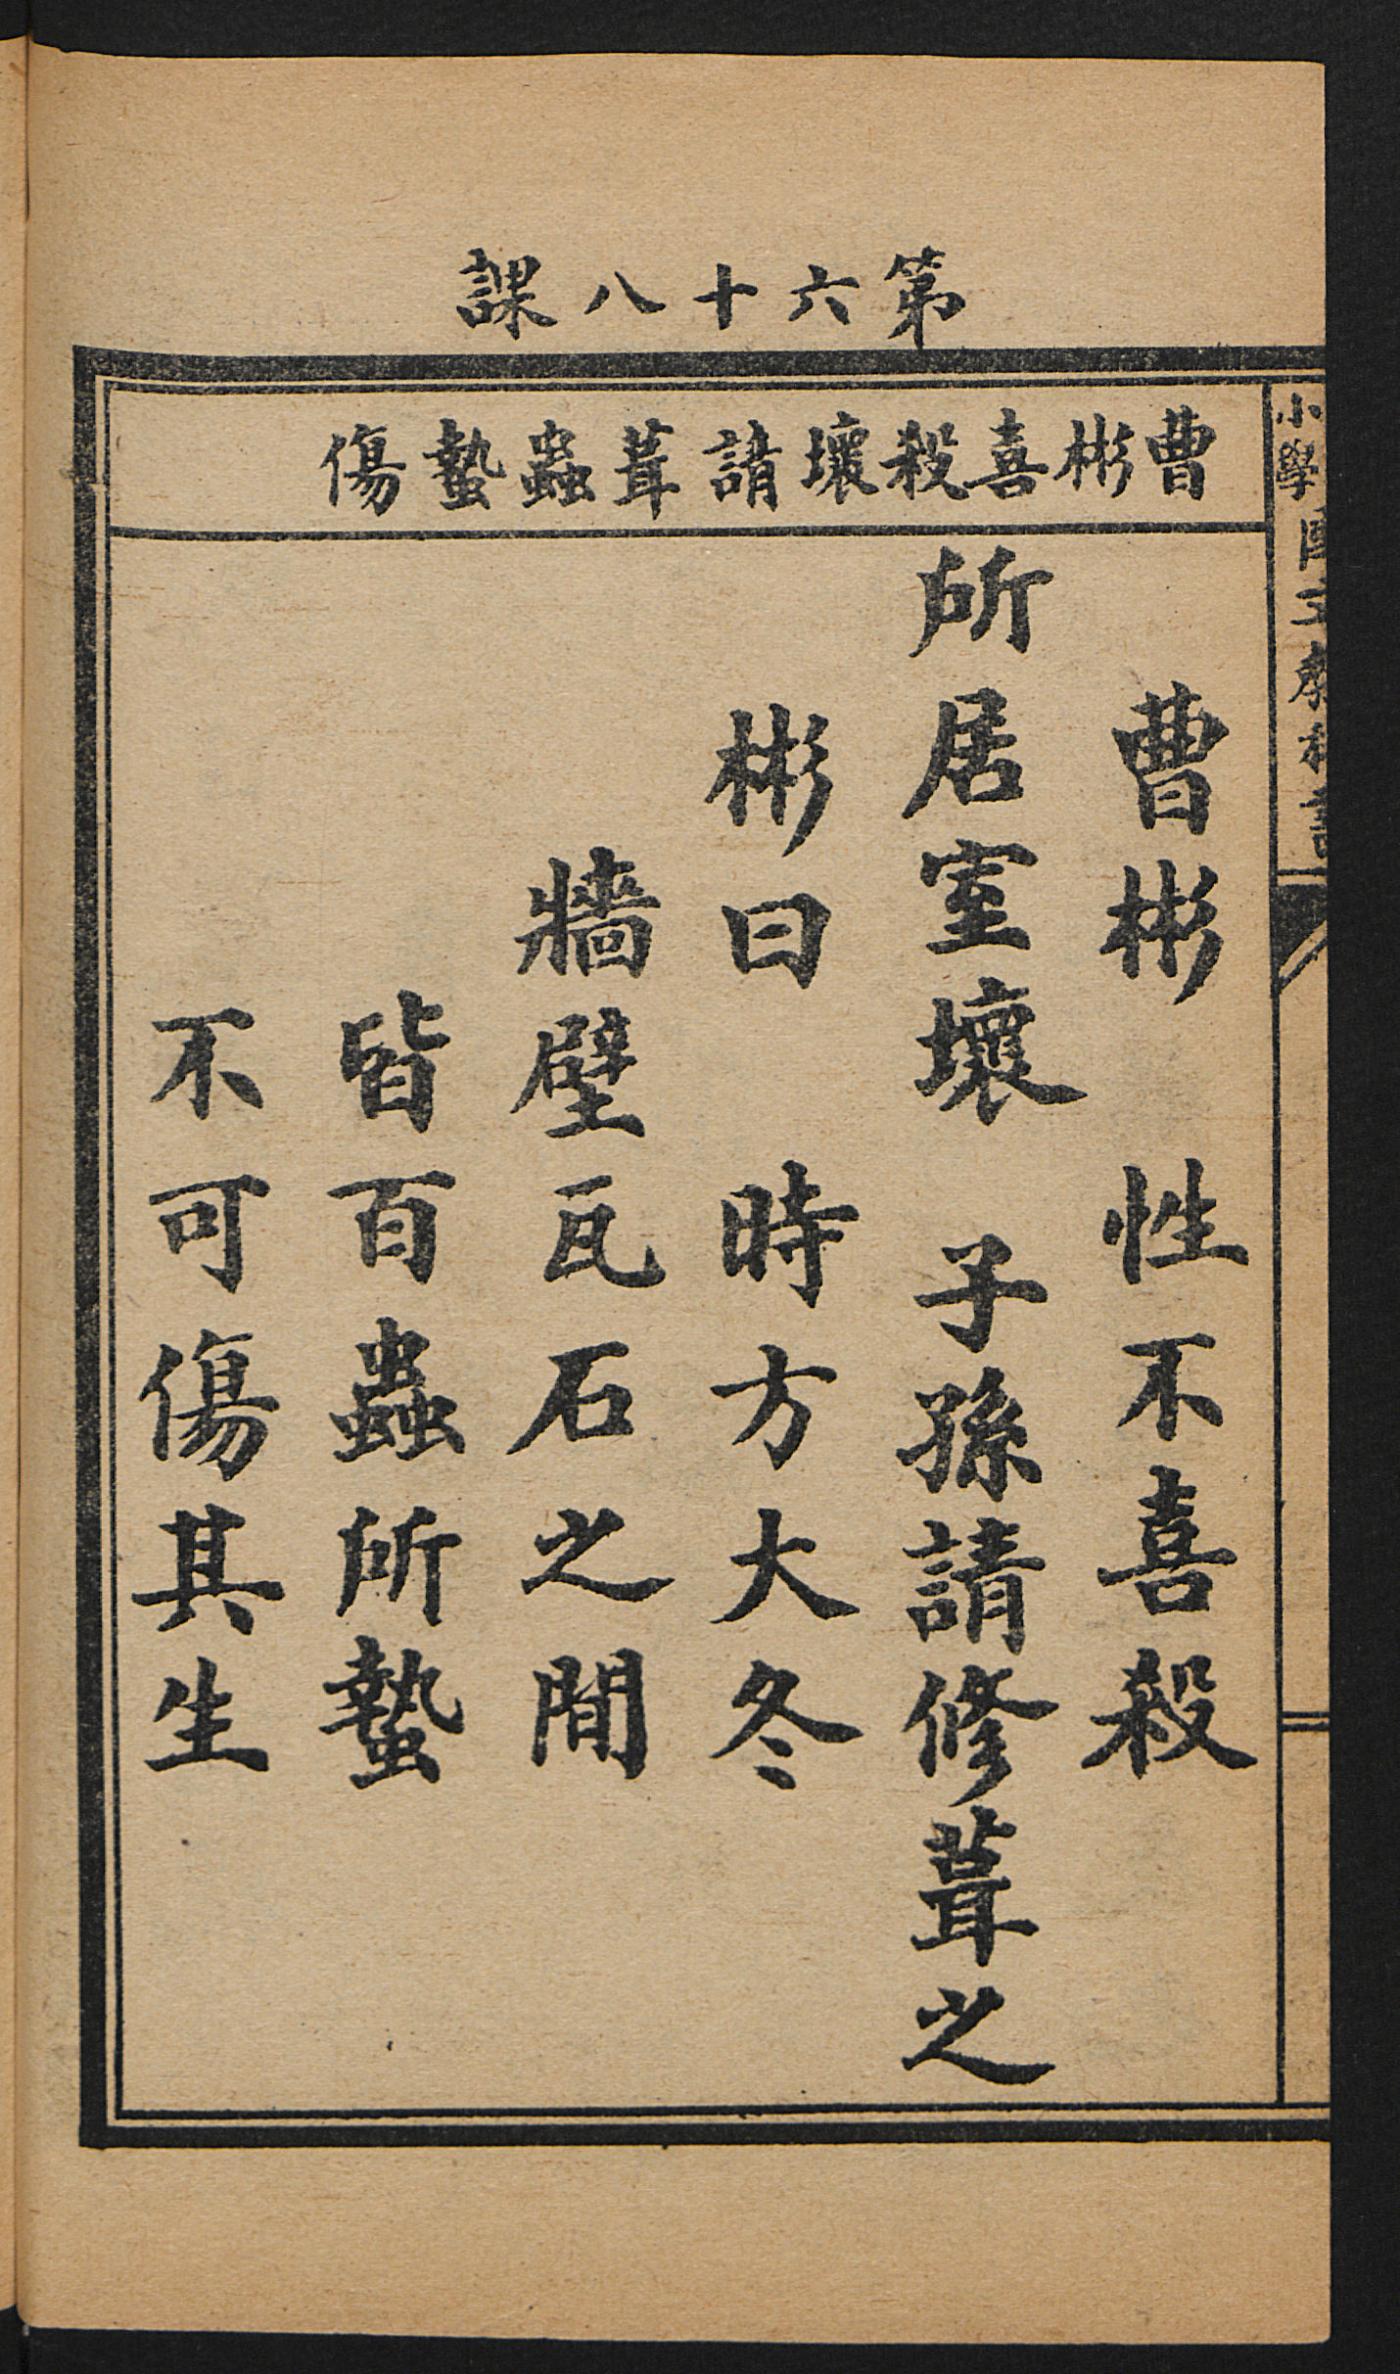 第六十八課
曹彬喜殺壞請葺蟲蟄傷
曹彬 性不喜殺
所居室壞 子孫請修葺之
彬曰 時方大冬
牆壁瓦石之間
皆百蟲所蟄
不可傷其生
小學國文教科書